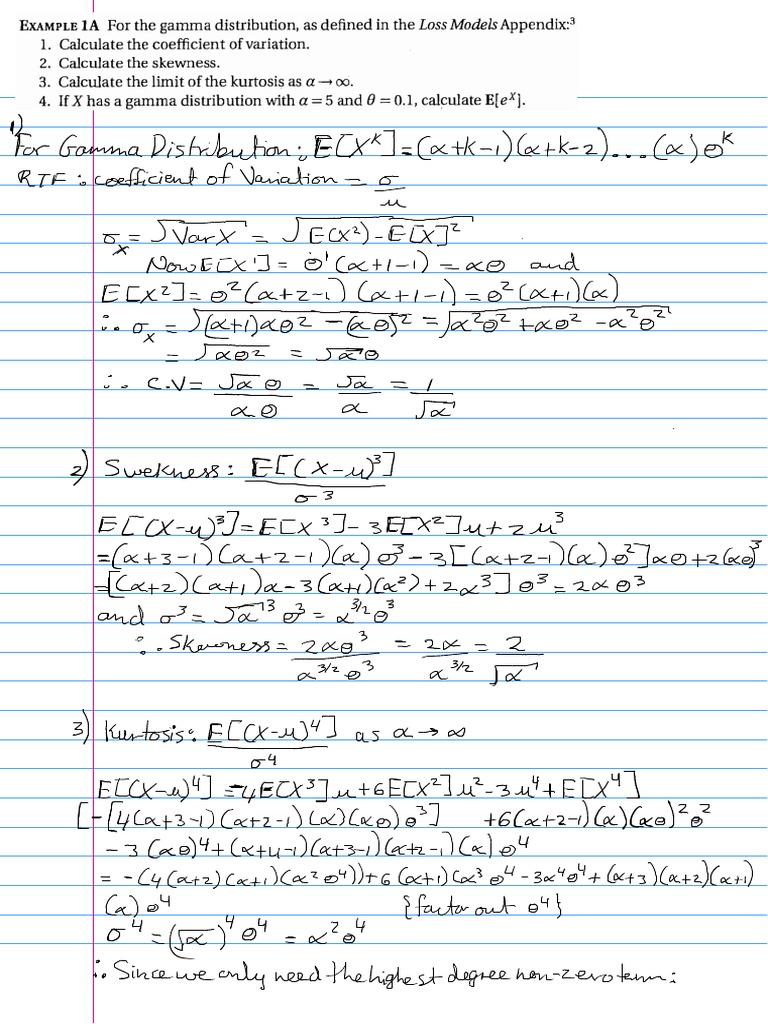 EXAMPLE 1A For the gamma distribution, as defined in the Loss Models Appendix:³
1. Calculate the coefficient of variation.
2. Calculate the skewness.
3. Calculate the limit of the kurtosis as α → ∞.
4. If X has a gamma distribution with α = 5 and θ = 0.1, calculate E[e^X].
1)
For Gamma Distribution: E[X^k] = (α+k-1)(α+k-2)...(α)θ^k
RTF: coefficient of Variation = σ/u
σ_x = √VarX = √E(X²)-E[X]²
Now E[X¹] = θ¹(α+1-1) = αθ and
E[X²] = θ²(α+2-1)(α+1-1) = θ²(α+1)(α)
∴ σ_x = √(α+1)αθ² - (αθ)² = √α²θ² + αθ² - α²θ²
= √αθ² = √α θ
∴ C.V = √α θ/αθ = √α/α = 1/√α
2) Swekness: E[(X-u)³]/σ³
E[(X-u)³] = E[X³] - 3E[X²]u + 2u³
= (α+3-1)(α+2-1)(α)θ³ - 3[(α+2-1)(α)θ²]αθ + 2(αθ)³
= [(α+2)(α+1)α - 3(α+1)(α²) + 2α³]θ³ = 2αθ³
and σ³ = √α³ θ³ = α^3/2 θ³
∴ Skewness = 2αθ³/α^3/2 θ³ = 2α/α^3/2 = 2/√α
3) Kurtosis: E[(X-u)⁴]/σ⁴ as α → ∞
E[(X-u)⁴] = -4E[X³]u + 6E[X²]u² - 3u⁴ + E[X⁴]
[-[4(α+3-1)(α+2-1)(α)(αθ)θ³] +6(α+2-1)(α)(αθ)²θ²
- 3(αθ)⁴ + (α+4-1)(α+3-1)(α+2-1)(α)θ⁴
= -(4(α+2)(α+1)(α²θ⁴)) + 6(α+1)(α³θ⁴ - 3α⁴θ⁴ + (α+3)(α+2)(α+1)
(α)θ⁴ {factor out θ⁴}
σ⁴ = (√α)⁴ θ⁴ = α²θ⁴
∴ Since we only need the highest degree non-zero term: